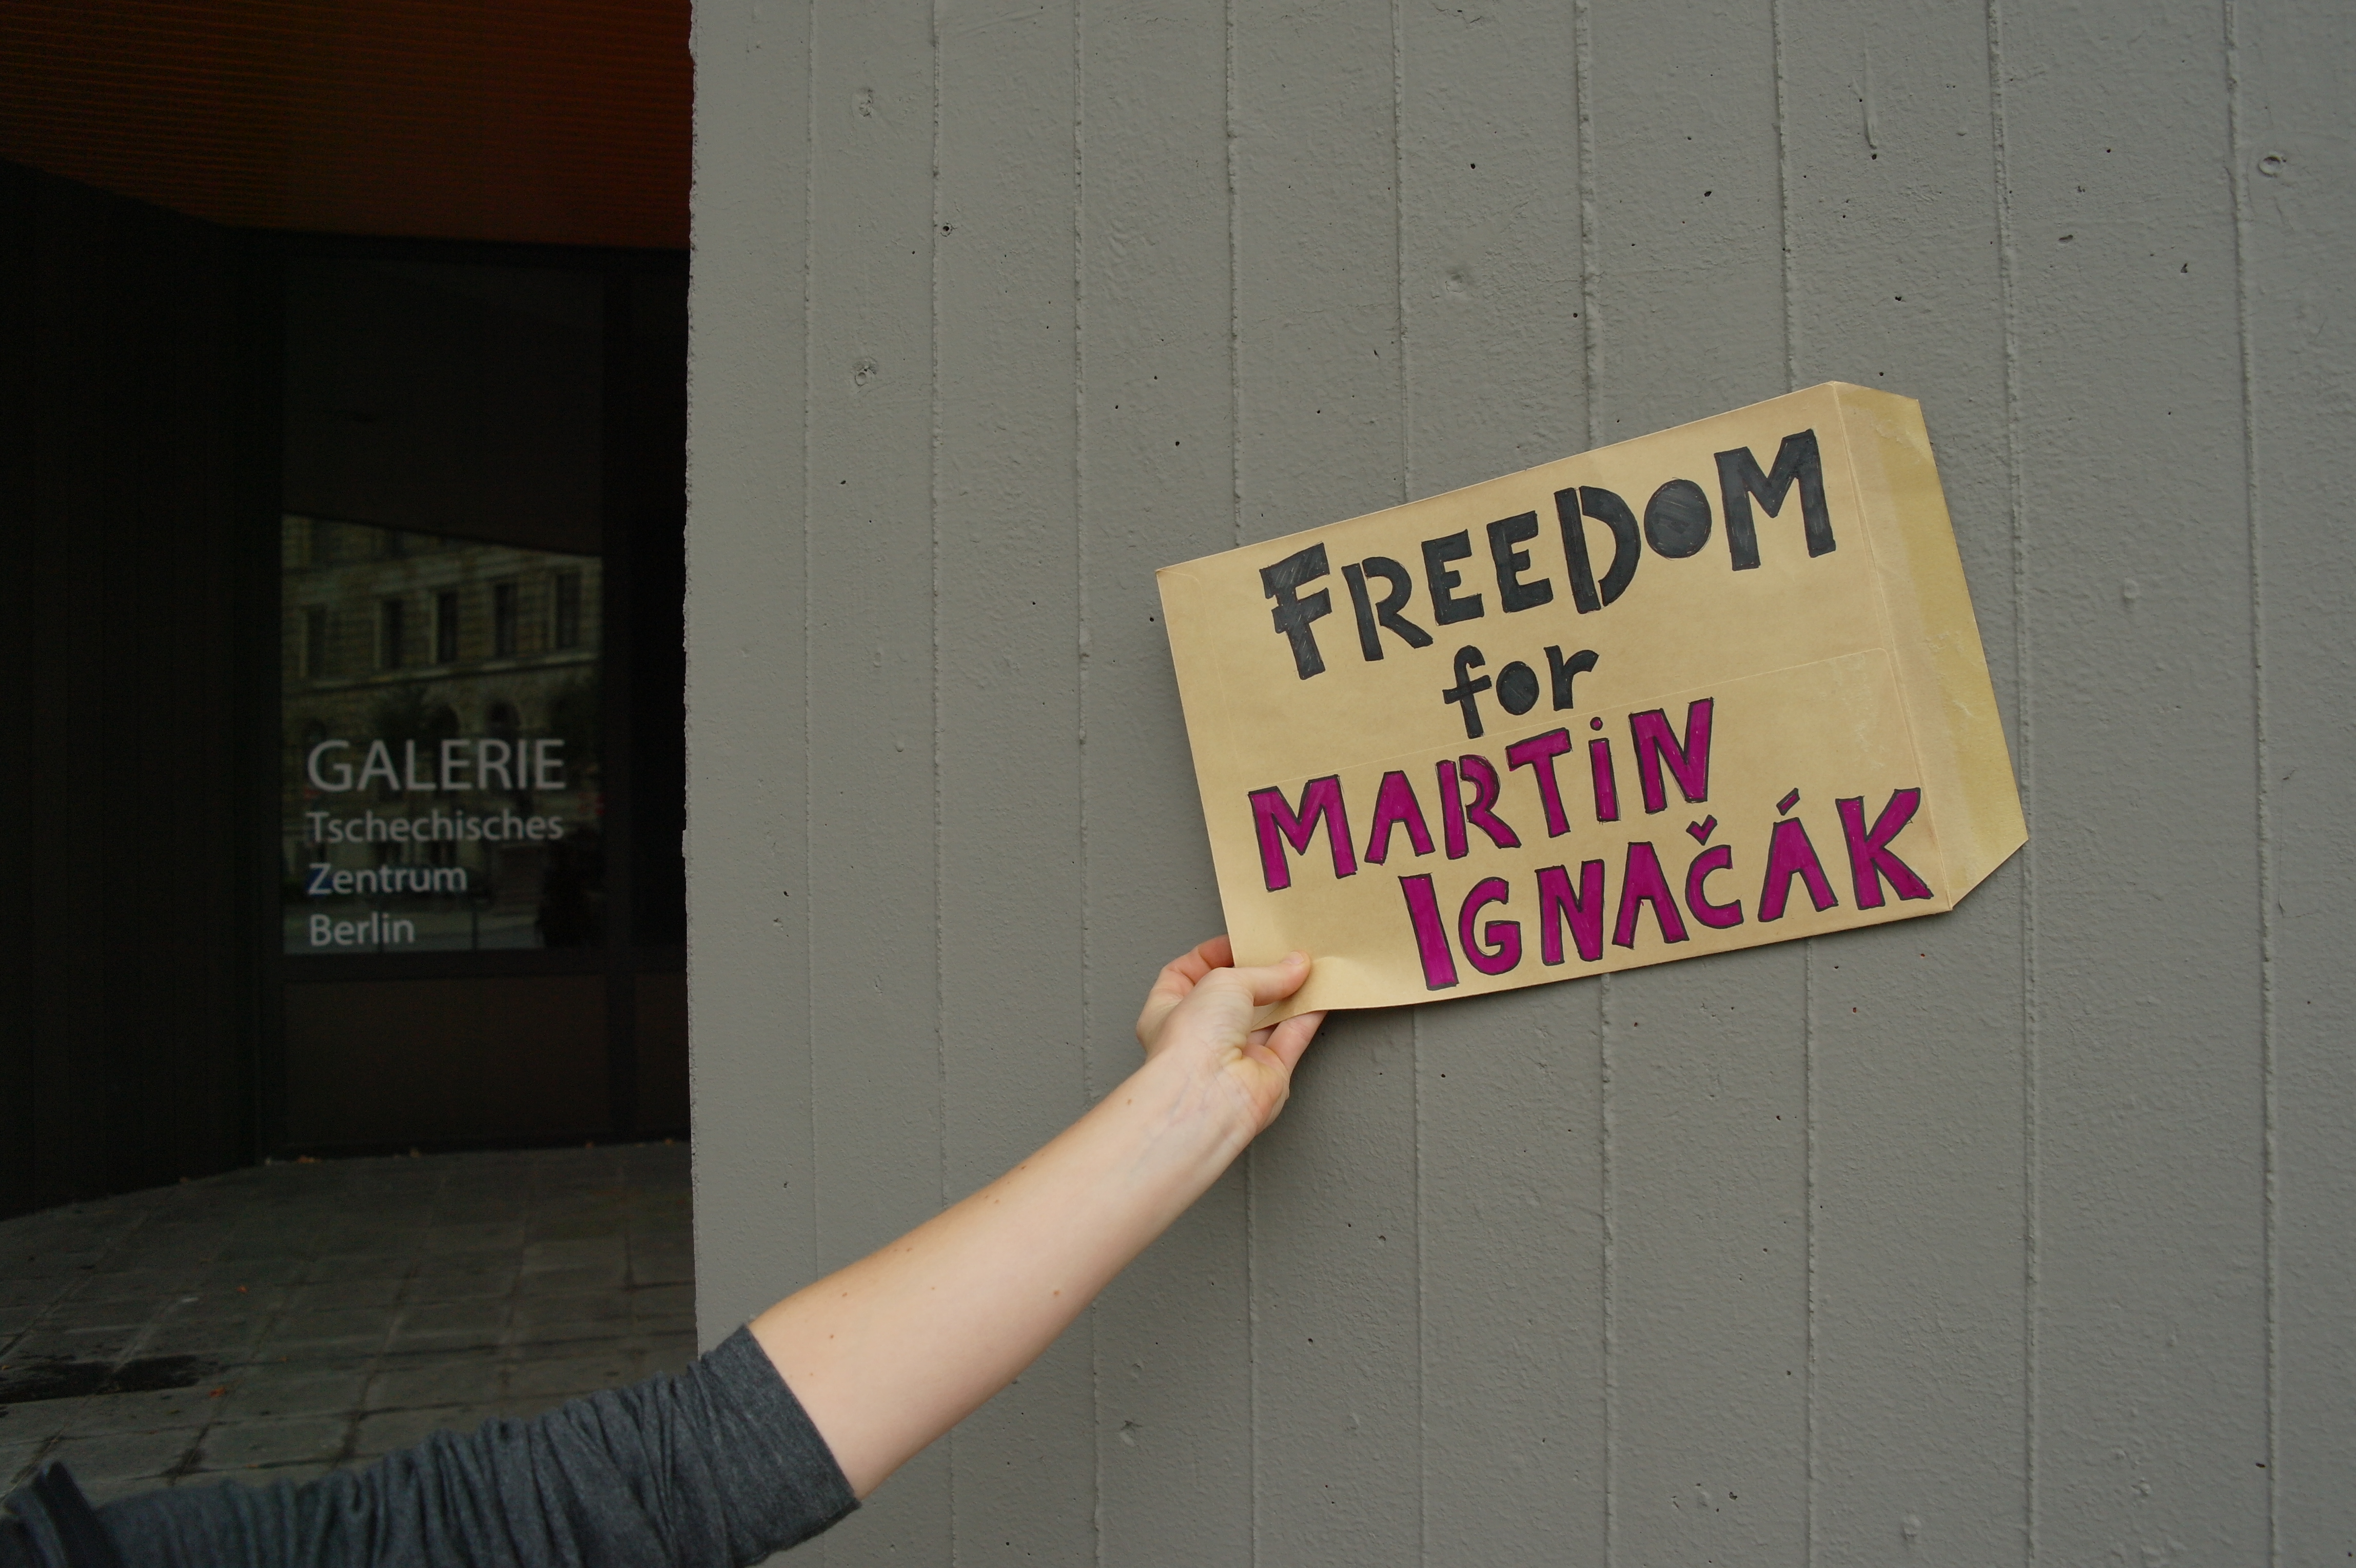 GALERIE
Tschechisches
Zentrum
Berlin
FREEDOM
for
MARTiN
IGNAČÁK